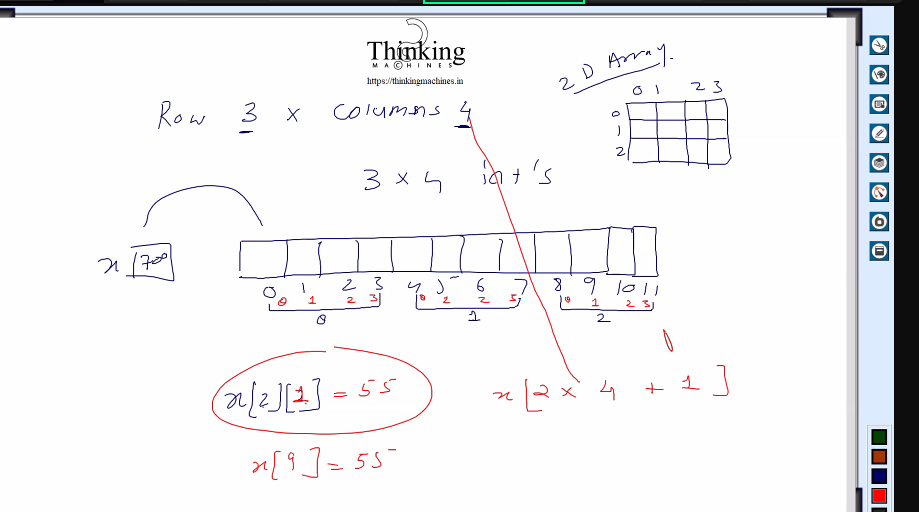 Thinking
MACHINES
https://thinkingmachines.in
2D Array
Row 3 x columns 4
0 1 2 3
0
1
2
3 x 4 int's
x 700
0 1 2 3 4 5 6 7 8 9 10 11
0 1 2 3 0 2 2 5 0 1 2 3
0 1 2
x[2][1] = 55
x[2 x 4 + 1]
x[9] = 55